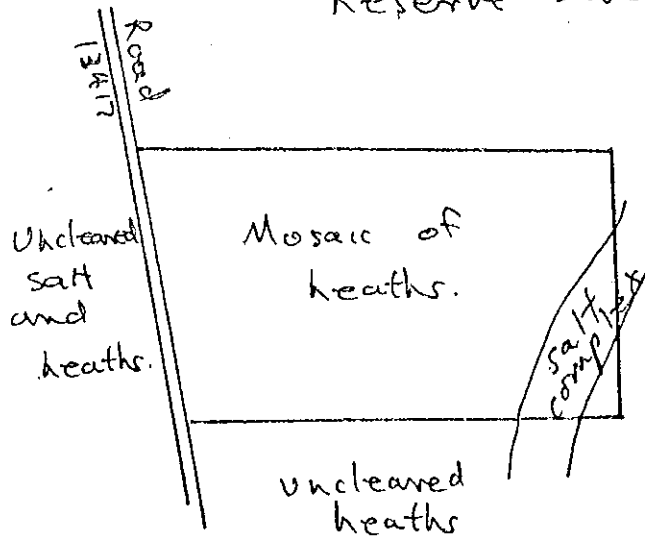 Reserve
Road
13417
Uncleared
salt
and
heaths.
Mosaic of
heaths.
salt
complex
uncleared
heaths